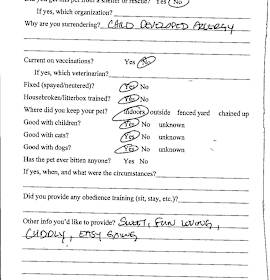 Did you get this pet from a shelter or rescue? Yes No
If yes, which organization?
Why are you surrendering? CHILD DEVELOPED ALLERGY
Current on vaccinations? Yes No
If yes, which veterinarian?
Fixed (spayed/neutered)? Yes No
Housebroken/litterbox trained? Yes No
Where did you keep your pet? indoors outside fenced yard chained up
Good with children? Yes No unknown
Good with cats? Yes No unknown
Good with dogs? Yes No unknown
Has the pet ever bitten anyone? Yes No
If yes, when, and what were the circumstances?
Did you provide any obedience training (sit, stay, etc.)?
Other info you'd like to provide? SWEET, FUN LOVING,
CUDDLY, EASY GOING